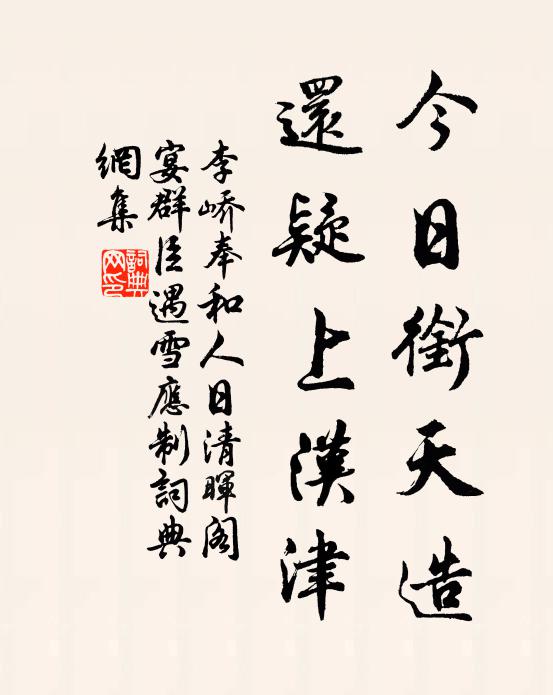 今日銜天造
還疑上漢津
李嶠奉和人日清暉閣
宴群臣遇雪應制詞典
網集
詞典
网印